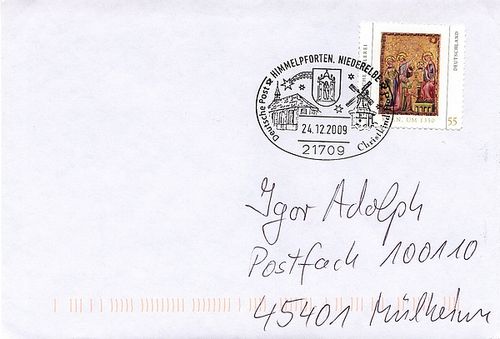 DEUTSCHLAND
N. UM 1310
55
Deutsche Post HIMMELPFORTEN, NIEDERELBE
24.12.2009
21709
Igor Adolph
Postfach 100110
45401 Mülheim